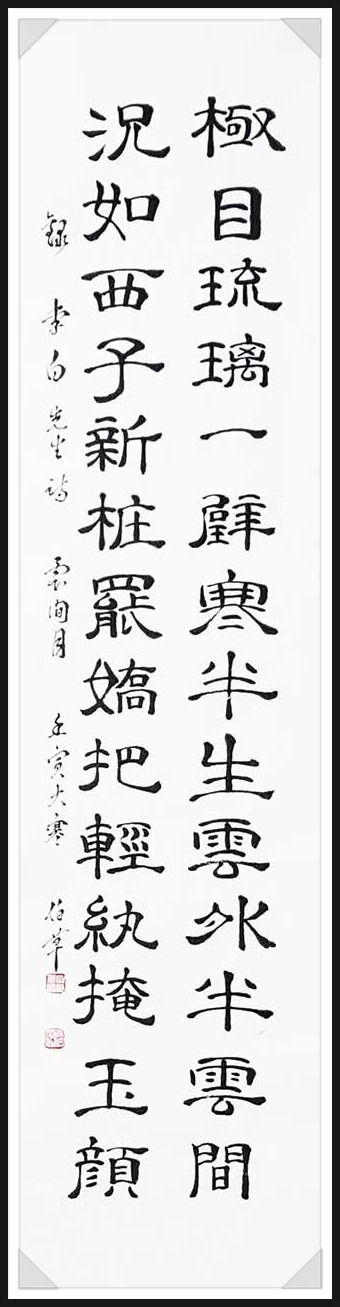 極目琉璃一璧寒半生雲外半雲間
況如西子新桩罷嬌把輕紈掩玉顔
錄 李白先生詩 雲間月 壬寅大寒